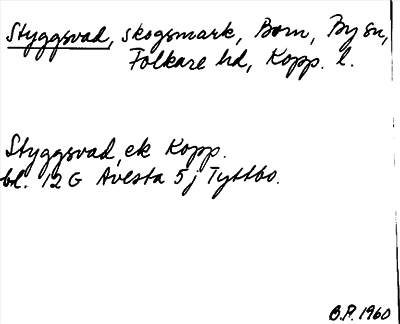 Styggsvad, skogsmark, Born, By sn,
Folkare hd, Kopp. l.
Styggsvad, ek Kopp.
bl. 12 G Avesta 5 j Tyttbo.
B.P. 1960